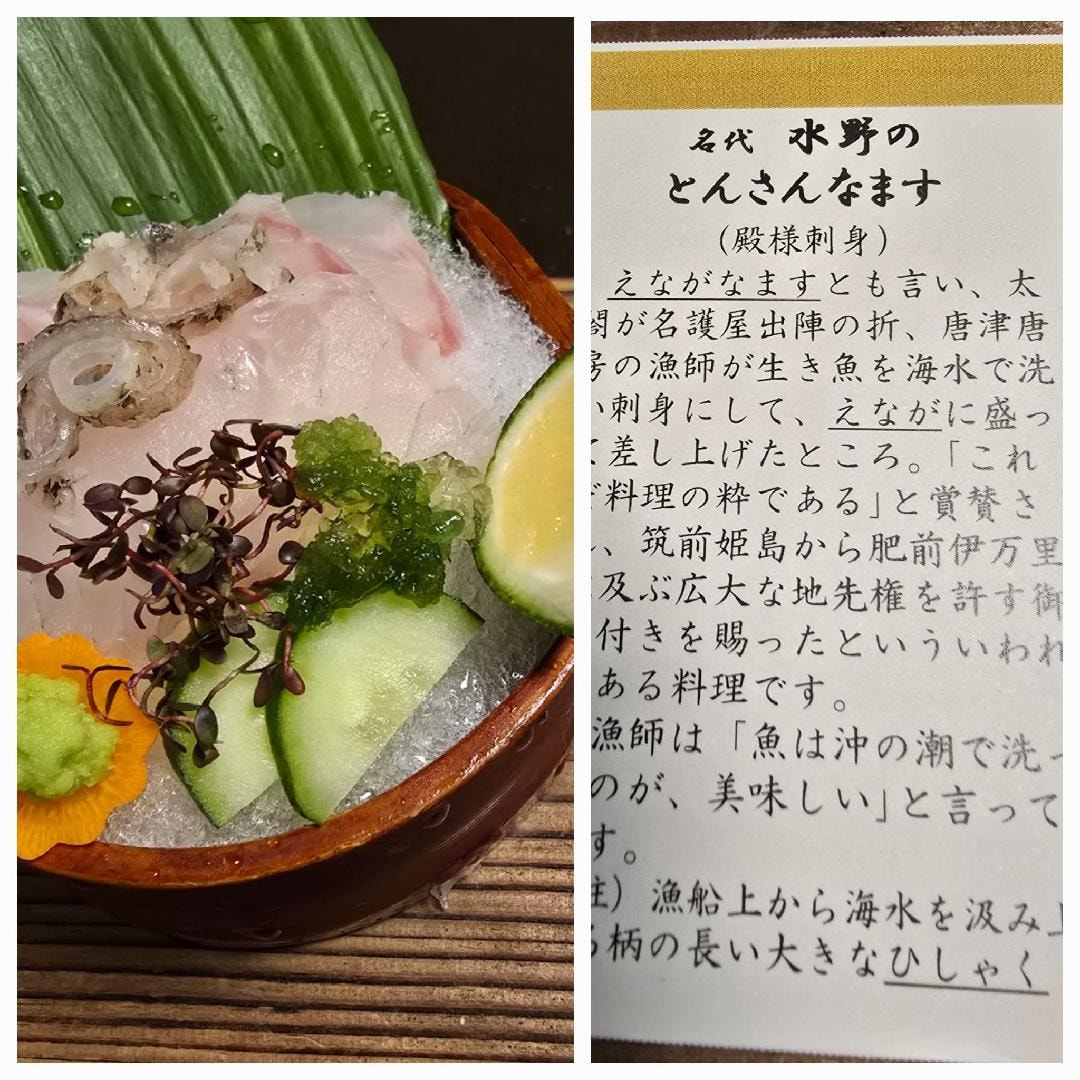 名代 水野の
とんさんなます
(殿様刺身)
えながなますとも言い、太
閤が名護屋出陣の折、唐津唐
房の漁師が生き魚を海水で洗
い刺身にして、えながに盛っ
て差し上げたところ。「これ
ぞ料理の粋である」と賞賛さ
、筑前姫島から肥前伊万里
及ぶ広大な地先権を許す御
付きを賜ったといういわれ
ある料理です。
漁師は「魚は沖の潮で洗っ
のが、美味しい」と言って
す。
注) 漁船上から海水を汲み上
る柄の長い大きなひしゃく